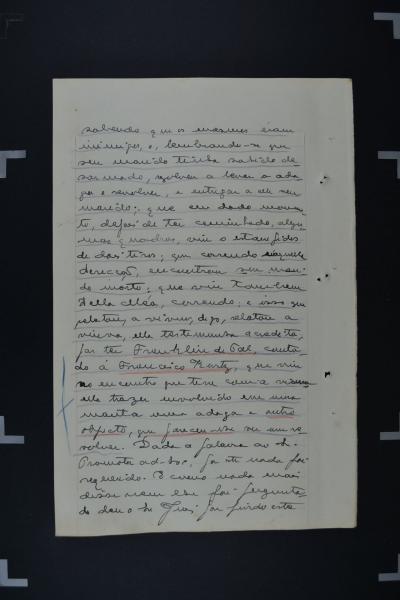 sabendo que os mesmos eram
inimigos, e, lembrando-se que
seu marido tinha sahido de
sarmado, resolveu a levar a ada
ga e revolver, e entregar a elle seu
marido; que em dado momen
to, depois de ter caminhado, algu
mas quadras, viu o estampidos
de dois tiros; que correndo naquella
direcção, encontrou seu mari
do morto; que viu tambem
Della Méa, correndo; e isso que
relatou a viuva, digo, relatou a
viuva, ella testemunha acredita,
por ter Franklin de Tal, conta
do á Francisco Kurtz, que viu
no encontro que teve com a viuva
ella trazer envolvido em uma
manta uma adaga e outro
objecto, que pareceu-lhe ser um re
volver. Dada a palavra ao Dr.
Promotor ad-hoc, por elle nada foi
requerido. E como nada mais
disse nem lhe foi pergunta
do deu o Sr. Juiz por findo este